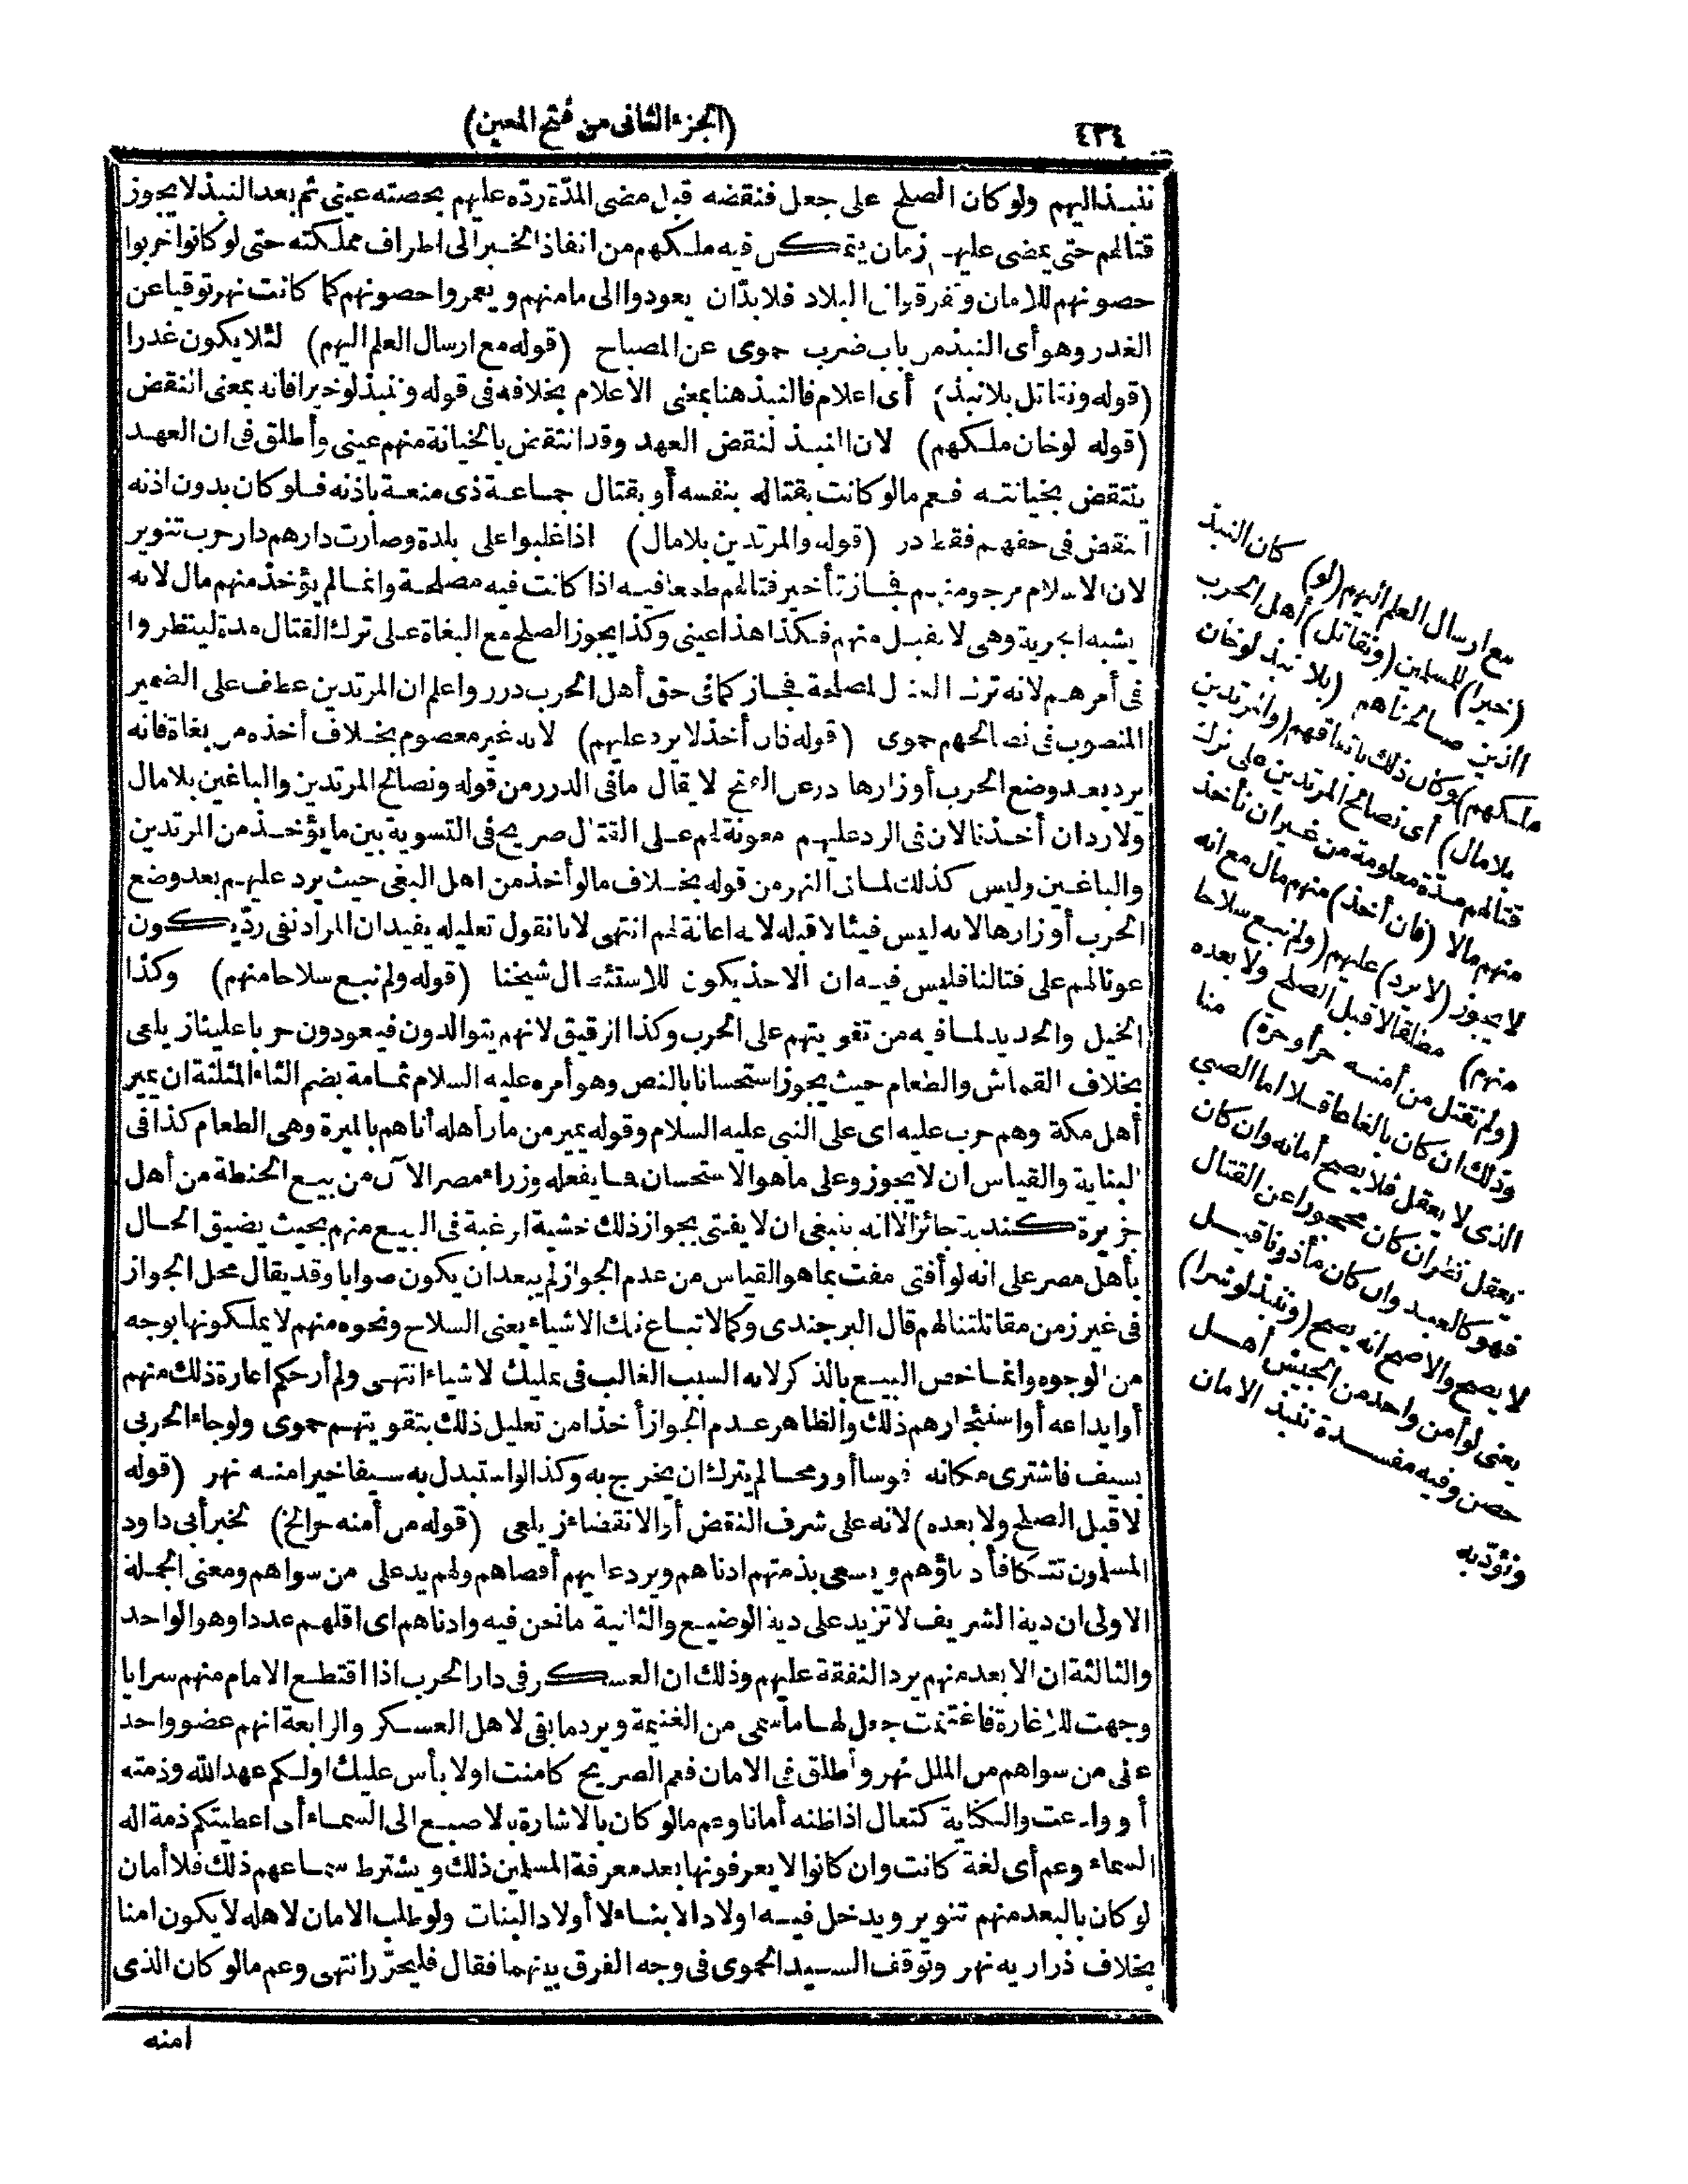 ٤٣٤
(الجزء الثانى من فتح المعين)
ننبذ اليهم ولو كان الصلح على جعل فنقضه قبل مضى المدّة ردّه عليهم بحصته عينى ثم بعد النبذ لا يجوز
قتالهم حتى يمضى عليهم زمان يتمكن فيه ملكهم من انفاذ الخبر الى اطراف مملكته حتى لو كانوا خربوا
حصونهم للامان وتفرقوا فى البلاد فلا بدّ ان يعودوا الى مامنهم ويعمروا حصونهم كما كانت نهر توقيا عن
الغدر وهو أى النبذ من باب ضرب حموى عن المصباح (قوله مع ارسال العلم اليهم) لئلا يكون غدرا
(قوله ونقاتل بلا نبذ) أى اعلام فالنبذ هنا بمعنى الاعلام بخلافه فى قوله وننبذ لو خيرا فانه بمعنى النقض
(قوله لو خان ملكهم) لان النبذ لنقض العهد وقد انتقض بالخيانة منهم عينى وأطلق فى ان العهد
ينتقض بخيانته فعم ما لو كانت بقتاله بنفسه أو بقتال جماعة ذى منعة باذنه فلو كان بدون اذنه
انتقض فى حقهم فقط در (قوله والمرتدين بلا مال) اذا غلبوا على بلدة وصارت دارهم دار حرب تنوير
لان الاسلام مرجو منهم فجاز تأخير قتالهم طمعا فيه اذا كانت فيه مصلحة وانما لم يؤخذ منهم مال لانه
يشبه الجزية وهى لا تقبل منهم فكذا هذا عينى وكذا يجوز الصلح مع البغاة على ترك القتال مدة لينظروا
فى أمرهم لانه ترك القتال لمصلحة فجاز كما فى حق أهل الحرب درر واعلم ان المرتدين عطف على الضمير
المنصوب فى نصالحهم حموى (قوله فان أخذ لا يرد عليهم) لانه غير معصوم بخلاف أخذه من بغاة فانه
يرد بعد وضع الحرب أوزارها در عن الفتح لا يقال ما فى الدرر من قوله ونصالح المرتدين والباغين بلا مال
ولا رد ان أخذنا لان فى الرد عليهم معونة لهم على القتال صريح فى التسوية بين ما يؤخذ من المرتدين
والباغين وليس كذلك لما فى النهر من قوله بخلاف ما لو أخذ من اهل البغى حيث يرد عليهم بعد وضع
الحرب أوزارها لانه ليس فيئا لا قبله لانه اعانة لهم انتهى لانا نقول تعليله يفيد ان المراد نفى ردّ يكون
عونا لهم على قتالنا فليس فيه ان الاخذ يكون للاستئصال شيخنا (قوله ولم نبع سلاحا منهم) وكذا
الخيل والحديد لما فيه من تقويتهم على الحرب وكذا الرقيق لانهم يتوالدون فيعودون حربا علينا زيلعى
بخلاف القماش والطعام حيث يجوز استحسانا بالنص وهو أمره عليه السلام ثمامة بضم الثاء المثلثة ان يمير
أهل مكة وهم حرب عليه اى على النبى عليه السلام وقوله يمير من مار أهله أتاهم بالميرة وهى الطعام كذا فى
البناية والقياس ان لا يجوز وعلى ما هو الاستحسان فما يفعله وزراء مصر الآن من بيع الحنطة من أهل
جزيرة جائز الا انه ينبغى ان لا يفتى بجواز ذلك خشية الرغبة فى البيع منهم بحيث يضيق الحال
بأهل مصر على انه لو أفتى مفت بما هو القياس من عدم الجواز لم يبعد ان يكون صوابا وقد يقال محل الجواز
فى غير زمن مقاتلتنا لهم قال البرجندى وكما لا تباع تلك الاشياء يعنى السلاح ونحوه منهم لا يملكونها بوجه
من الوجوه وانما خص البيع بالذكر لانه السبب الغالب فى تمليك الاشياء انتهى ولم أر حكم اعارة ذلك منهم
أو ايداعه أو استئجارهم ذلك والظاهر عدم الجواز أخذا من تعليل ذلك بتقويتهم حموى ولو جاء الحربى
بسيف فاشترى مكانه قوسا أو رمحا لم يترك ان يخرج به وكذا لو استبدل به سيفا خيرا منه نهر (قوله
لا قبل الصلح ولا بعده) لانه على شرف النقض أو الانقضاء زيلعى (قوله من أمنه حر الخ) لخبر أبى داود
المسلمون تتكافأ دماؤهم ويسعى بذمتهم ادناهم ويرد عليهم أقصاهم وهم يد على من سواهم ومعنى الجملة
الاولى ان دية الشريف لا تزيد على دية الوضيع والثانية ما نحن فيه وادناهم اى اقلهم عددا وهو الواحد
والثالثة ان الابعد منهم يرد النفقة عليهم وذلك ان العسكر فى دار الحرب اذا اقتطع الامام منهم سرايا
وجهت للاغارة فاغتنمت جعل لها ما سمى من الغنيمة ويرد ما بقى لاهل العسكر والرابعة انهم عضو واحد
على من سواهم من الملل نهر وأطلق فى الامان فعم الصريح كامنت او لا بأس عليك او لكم عهد الله وذمته
أو وادعت والكناية كتعال اذا ظنه أمانا وعم ما لو كان بالاشارة بالاصبع الى السماء أى اعطيتكم ذمة اله
السماء وعم أى لغة كانت وان كانوا لا يعرفونها بعد معرفة المسلمين ذلك ويشترط سماعهم ذلك فلا أمان
لو كان بالبعد منهم تنوير ويدخل فيه اولاد الابناء لا أولاد البنات ولو طلب الامان لاهله لا يكون امنا
بخلاف ذراريه نهر وتوقف السيد الحموى فى وجه الفرق بينهما فقال فليحرّر انتهى وعم ما لو كان الذى
امنه
مع ارسال العلم اليهم (لو) كان النبذ
(خيرا) للمسلمين (ونقاتل) أهل الحرب
الذين صالحناهم (بلا نبذ لو خان
ملكهم) وكان ذلك باتفاقهم (والمرتدين
بلا مال) أى نصالح المرتدين على ترك
قتالهم مدّة معلومة من غير ان نأخذ
منهم مالا (فان أخذ) منهم مال مع انه
لا يجوز (لا يرد) عليهم (ولم نبع سلاحا
منهم) مطلقا لا قبل الصلح ولا بعده
(ولم نقتل من أمنه حر أو حرة) منا
وذلك ان كان بالغا عاقلا اما الصبى
الذى لا يعقل فلا يصح أمانه وان كان
يعقل نظر ان كان محجورا عن القتال
فهو كالعبد وان كان مأذونا قيل
لا يصح والاصح انه يصح (وننبذ لو شرا)
يعنى لو أمن واحد من الجيش أهل
حصن وفيه مفسدة ننبذ الامان
ونؤدّبه